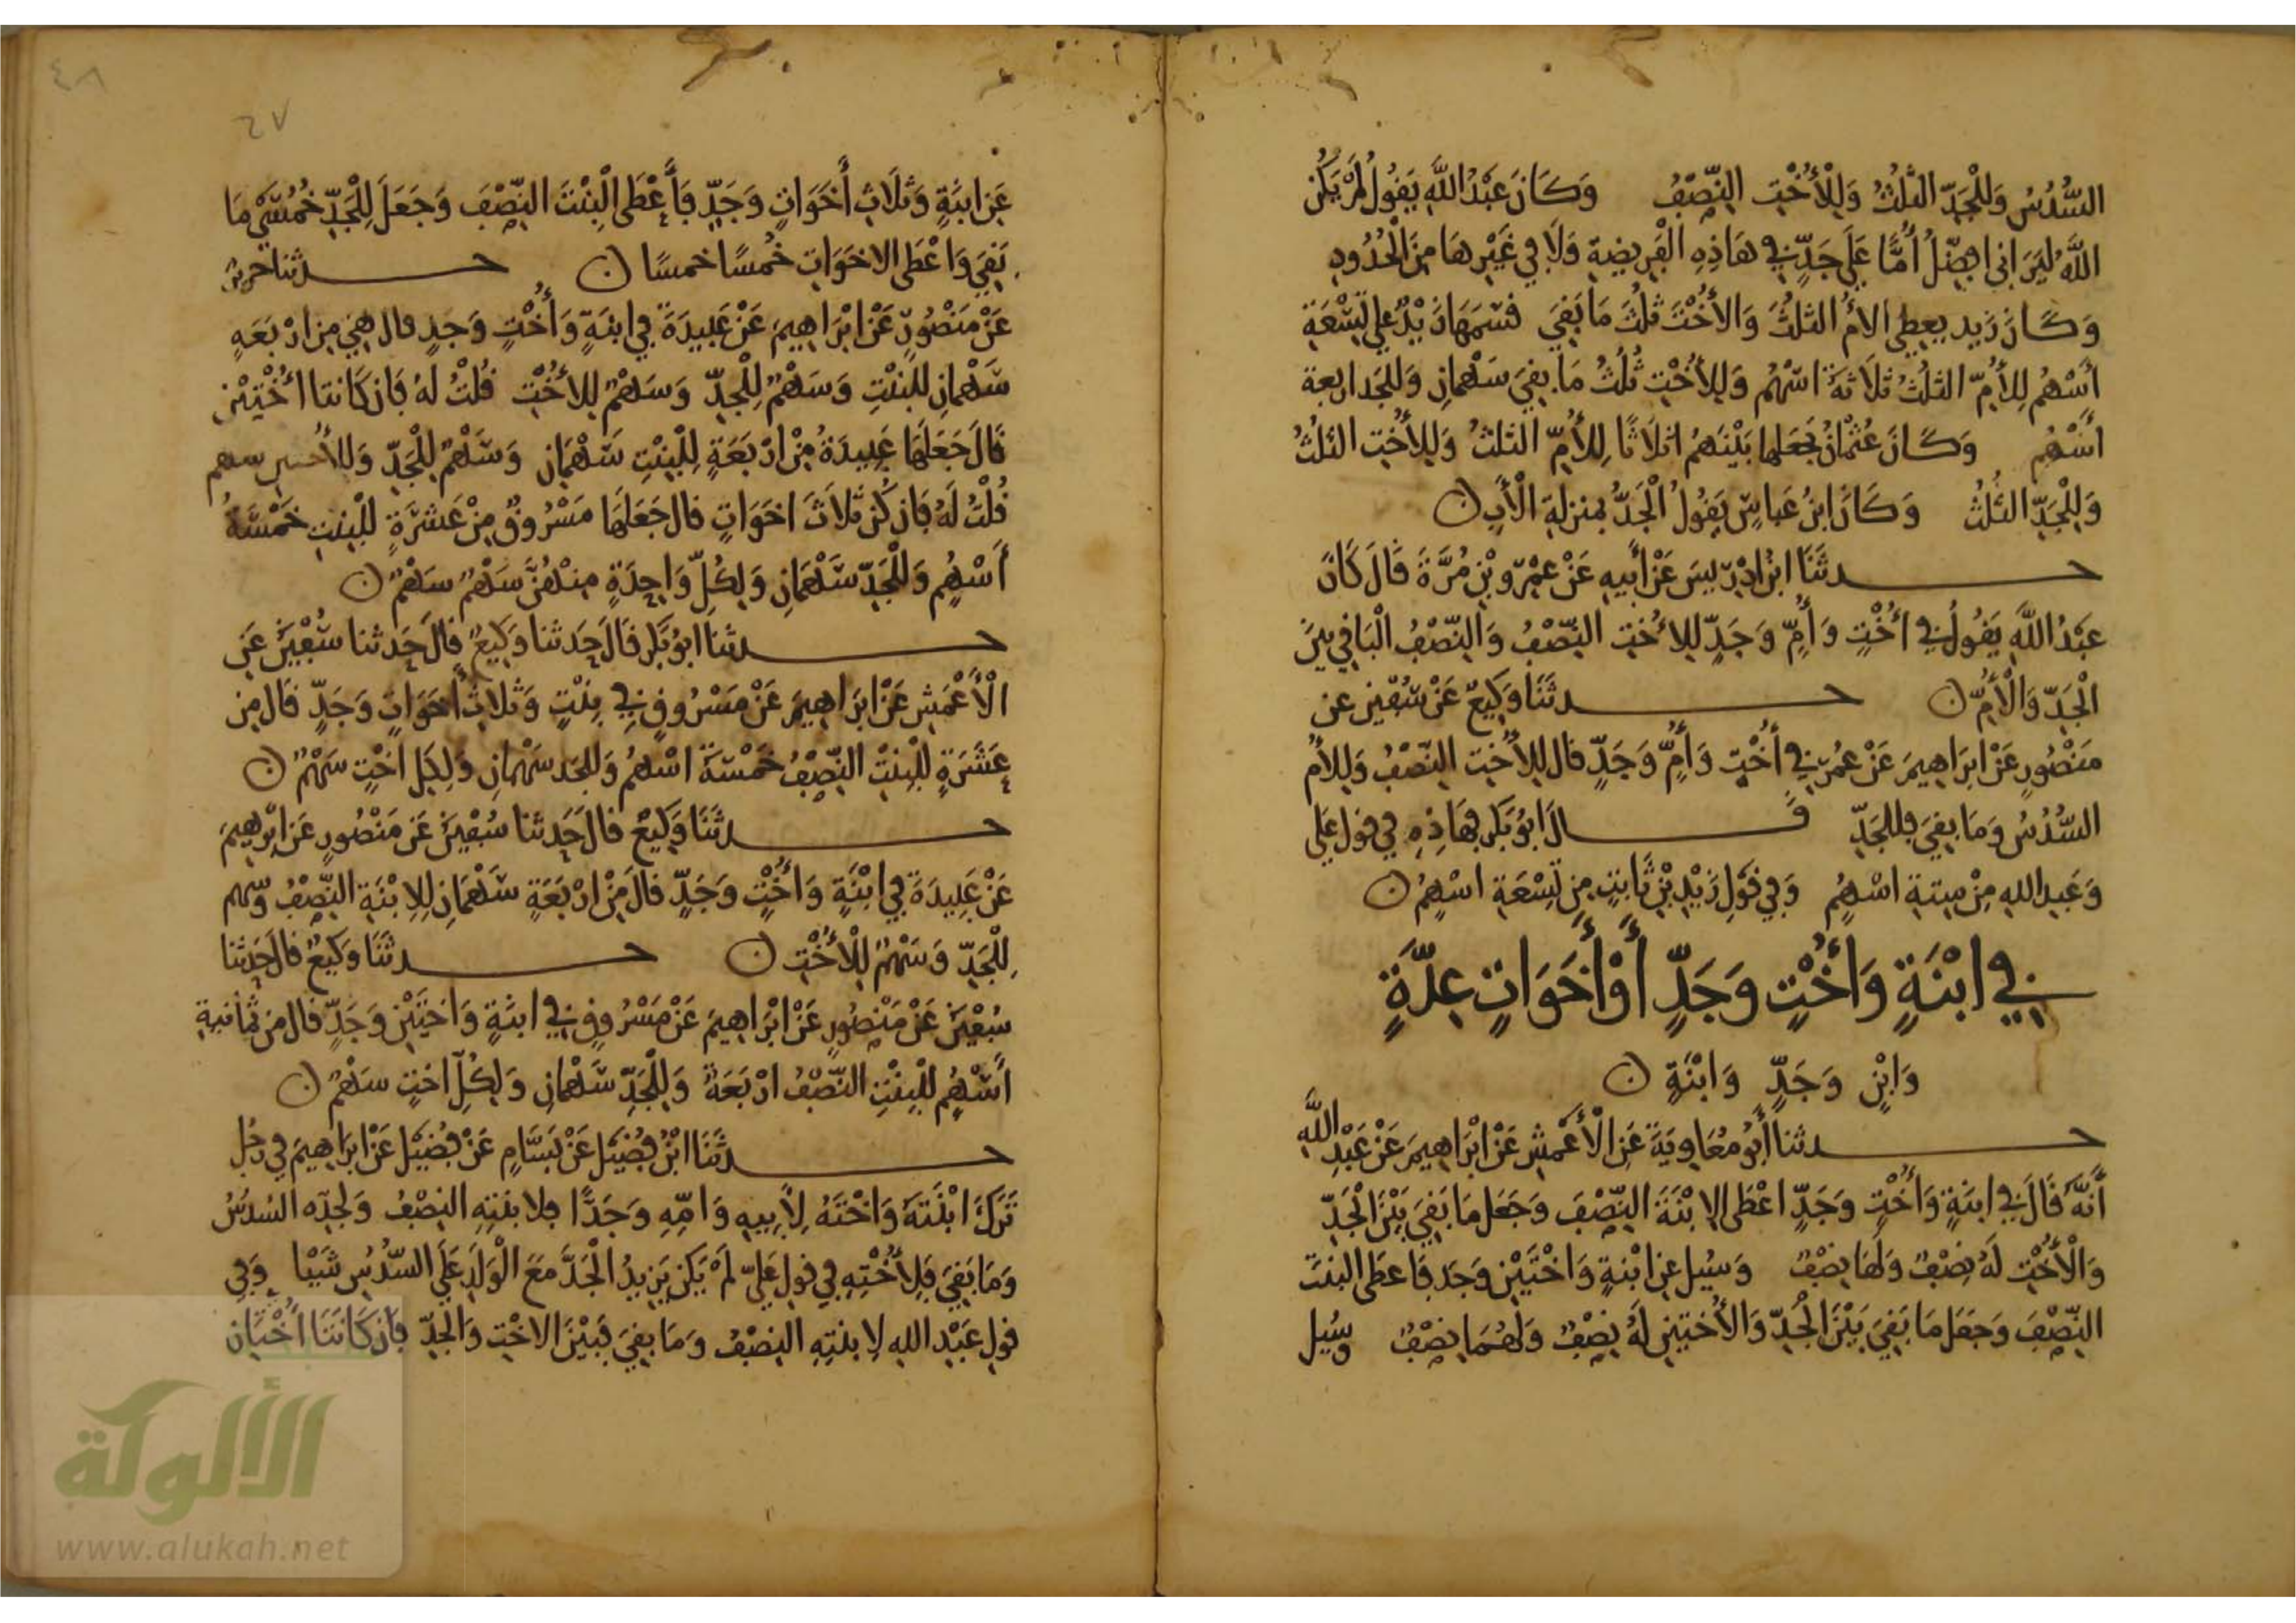 السُّدُسُ وَلِلْجَدِّ الثُّلُثُ وَلِلْأُخْتِ النِّصْفُ وَكَانَ عَبْدُ اللَّهِ يَقُولُ لَمْ يَكُنِ
اللَّهُ لِيَرَانِي افَضِّلُ أُمًّا عَلَى جَدٍّ فِي هَاذِهِ الْفَرِيضَةِ وَلَا فِي غَيْرِهَا مِنَ الْحُدُودِ
وَكَانَ زَيْد يُعطِي الأمُّ الثلُثَ وَالأُخْتَ ثلُثَ مَا بَقِيَ قسَمَهَا زَيْدٌ عَلى تِسْعَةِ
أَسْهُمٍ لِلأُمِّ الثلُثُ ثلَاثَةُ اسْهُم وَلِلأُخْتِ ثُلُثُ مَا بقِيَ سَهْمانِ وَللجَد اربعة
أَسْهُمٍ وَكَانَ عُثْمَانُ يَجْعَلها بَيْنَهُمْ اثلَاثًا لِلأُمِّ الثلثُ وَلِلأُخْتِ الثلُثُ
وَلِلْجَدِّ الثلُثُ وَكَانَ ابنُ عَباسٍ يَقُولُ الْجَدُّ بمنزلةِ الْأَبِ ن
حدثَنَا ابنُ ادْرِيسَ عَنْ أَبِيهِ عَنْ عَمْرِو بْنِ مُرَّةَ قَالَ كَانَ
عَبْدُ اللَّهِ يَقُولُ فِي أُخْتٍ وَأُمٍّ وَجَدٍّ لِلأُخْتِ النِّصْفُ وَالنِّصْفُ الْبَاقِي بَيْنَ
الْجَدِّ وَالْأُمِّ ن حدثَنَا وَكِيعٌ عَنْ سُفْيٰنَ عن
مَنْصُورٍ عَنْ ابرَاهِيمَ عَنْ عُمَرَ فِي أُخْتٍ وَأُمٍّ وَجَدٍّ قال لِلأُخْتِ النِّصْفُ وَلِلأُمِّ
السُّدُسُ وَمَا بقِيَ فللجَدِّ قَالَ ابُو بَكْرٍ فهَاذِهِ فِي قولِ عَلِي
وَعَبدِ الله مِنْ سِتةِ اسْهُمٍ وَفِي قَوْلِ زَيْدِ بْنِ ثَابِتٍ مِن تِسْعَةِ اسْهُمٍ ن
فِي ابْنَةٍ وَأُخْتٍ وَجَدٍّ أَوْ أَخَوَاتٍ عِدَّةٍ
وَابْنٍ وَجَدٍّ وَابْنَةٍ ن
حدثنا أَبُو مُعَاوِيَةَ عَنِ الْأَعْمَشِ عَنْ ابْرَاهِيمَ عَنْ عَبْدِ اللَّهِ
أَنَّهُ قَالَ فِي ابنَةٍ وَأُخْتٍ وَجَدٍّ اعْطَى الابْنَةَ النِّصْفَ وَجَعَلَ مَا بَقِيَ بَيْنَ الْجَدِّ
وَالْأُخْتِ لَهُ نِصْفٌ وَلَهَا نِصْفٌ وَسُيِلَ عنِ ابْنةٍ وَاخْتَيْنِ وَجَد فَاعطَى البنتَ
النِّصْفَ وَجَعَلَ مَا بَقِيَ بَيْنَ الْجَدِّ وَالأُخْتينِ لَهُ نِصْفٌ وَلَهُمَا نِصْفٌ وسُيل
٤٨
٤٧
عَنِ ابنَةٍ وَثلَاثِ أَخَوَاتٍ وَجَدٍّ فَأَعْطَى الْبِنْتَ النِّصْفَ وَجَعَلَ لِلْجَدِّ خُمُسَيْ مَا
بَقِيَ وَاعْطَى الاخَوَاتِ خُمسًا خمسًا ن حدثنا جرير
عَنْ مَنْصُورٍ عَنْ ابْرَاهِيمَ عَنْ عَبِيدَةَ فِي ابنَةٍ وَأُخْتٍ وَجَدٍ قال هِيَ مِن ارْبَعَةٍ
سَهْمانِ لِلْبِنْتِ وَسَهْمٌ لِلْجَدِّ وَسَهْمٌ لِلأُخْتِ قُلْتُ لَهُ فَإن كَانتا اُخْتَيْنِ
قَالَ جَعَلَهَا عَبِيدَةُ مِنْ ارْبَعَةٍ لِلْبِنْتِ سَهْمَانِ وَسَهْمٌ لِلْجَدِّ وَلِلأُختين سهم
قُلْتُ لَهُ فَإن كُنَّ ثَلَاثَ اخَوَاتٍ قال جَعَلَهَا مَسْرُوقٌ مِنْ عَشَرَةٍ لِلْبِنتِ خَمْسَةُ
أَسْهُمٍ وَلِلْجَدِّ سَهْمَانِ وَلِكُلِّ وَاحِدَةٍ مِنْهُنَّ سَهْمٌ سَهْمٌ ن
حدثنا ابُو بَكْر قَالَ حَدثنا وَكِيعٌ قالَ حَدثنا سُفْيٰنُ عَنِ
الْأَعْمَشِ عَنْ ابرَاهِيمَ عَنْ مَسْرُوقٍ فِي بِنْتٍ وَثلاثِ أَخَوَاتٍ وَجَدٍّ قَالَ مِن
عَشَرَةٍ لِلْبِنْتِ النِّصْفُ خَمْسَةُ اسْهُمٍ وَللجَد سَهْمانِ وَلِكُلِ اخْتٍ سَهْمٌ ن
حدثَنَا وَكِيعٌ قالَ حَدثنا سُفْيٰنُ عَن مَنْصُورٍ عَنِ ابْرٰهِيمَ
عَنْ عَبِيدَةَ فِي ابْنَةٍ وَأُخْتٍ وَجَدٍّ قَالَ مِنْ ارْبَعَةٍ سَهْمَانِ لِلِابْنَةِ النِّصْفُ وَسَهم
لِلْجَدِّ وَسَهْمٌ لِلْأُخْتِ ن حدثَنَا وَكِيعٌ قالَ حَدثنا
سُفْيٰنُ عَنْ مَنْصُورٍ عَنْ ابْرَاهِيمَ عَنْ مَسْرُوقٍ فِي ابنةٍ وَاخْتَيْنِ وَجَدٍّ قَالَ مِن ثمَانيةِ
أَسْهُمٍ لِلْبِنْتِ النِّصْفُ ارْبَعَةٌ وَلِلْجَدِّ سَهْمانِ وَلِكُلِّ اختٍ سَهْمٌ ن
حدثَنَا ابْنُ فُضَيْل عَنْ بَسَّامٍ عَنْ فُضَيْل عَنْ ابرَاهِيمَ فِي رَجُلٍ
تَرَكَ ابْنَتَهُ وَاخْتَهُ لِأَبِيهِ وَامِّهِ وَجَدًّا فلابنَتِهِ النِصْفُ وَلجَدِّه السُدُسُ
وَمَا بَقِيَ فَلِأُخْتِهِ فِي قول عَلِيّ لَمْ يَكن يَزِيدُ الْجَدَّ مَعَ الْوَلَدِ عَلَى السُّدُسِ شَيْا وَفِي
قولِ عَبْدِ اللهِ لِابنتِهِ النِصْفُ وَمَا بقِيَ فَبَيْنَ الاخْتِ وَالْجَدِّ فَإن كَانَتَا أُخْتَانِ
الألوكة
www.alukah.net